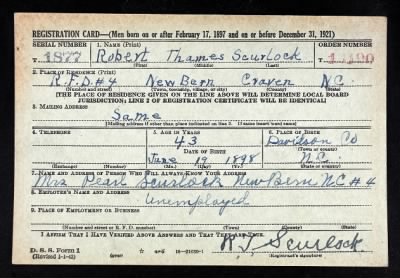 REGISTRATION CARD—(Men born on or after February 17, 1897 and on or before December 31, 1921)
SERIAL NUMBER 1. NAME (Print) ORDER NUMBER
T 1877 Robert Thames Scurlock T
(First) (Middle) (Last)
2. PLACE OF RESIDENCE (Print)
R.F.D. #4 New Bern Craven N.C.
(Number and street) (Town, township, village, or city) (County) (State)
[THE PLACE OF RESIDENCE GIVEN ON THE LINE ABOVE WILL DETERMINE LOCAL BOARD
JURISDICTION; LINE 2 OF REGISTRATION CERTIFICATE WILL BE IDENTICAL]
3. MAILING ADDRESS
Same
[Mailing address if other than place indicated on line 2. If same insert word same]
4. TELEPHONE 5. AGE IN YEARS 6. PLACE OF BIRTH
43 Davidson Co
DATE OF BIRTH (Town or county)
June 19 1898 N.C.
(Exchange) (Number) (Mo.) (Day) (Yr.) (State or country)
7. NAME AND ADDRESS OF PERSON WHO WILL ALWAYS KNOW YOUR ADDRESS
Mrs Pearl Scurlock New Bern N.C. #4
8. EMPLOYER'S NAME AND ADDRESS
Unemployed
9. PLACE OF EMPLOYMENT OR BUSINESS
(Number and street or R. F. D. number) (Town) (County) (State)
I AFFIRM THAT I HAVE VERIFIED ABOVE ANSWERS AND THAT THEY ARE TRUE.
D. S. S. Form 1
(Revised 1-1-42) (over) 16—21630-1 R.T. Scurlock
(Registrant's signature)